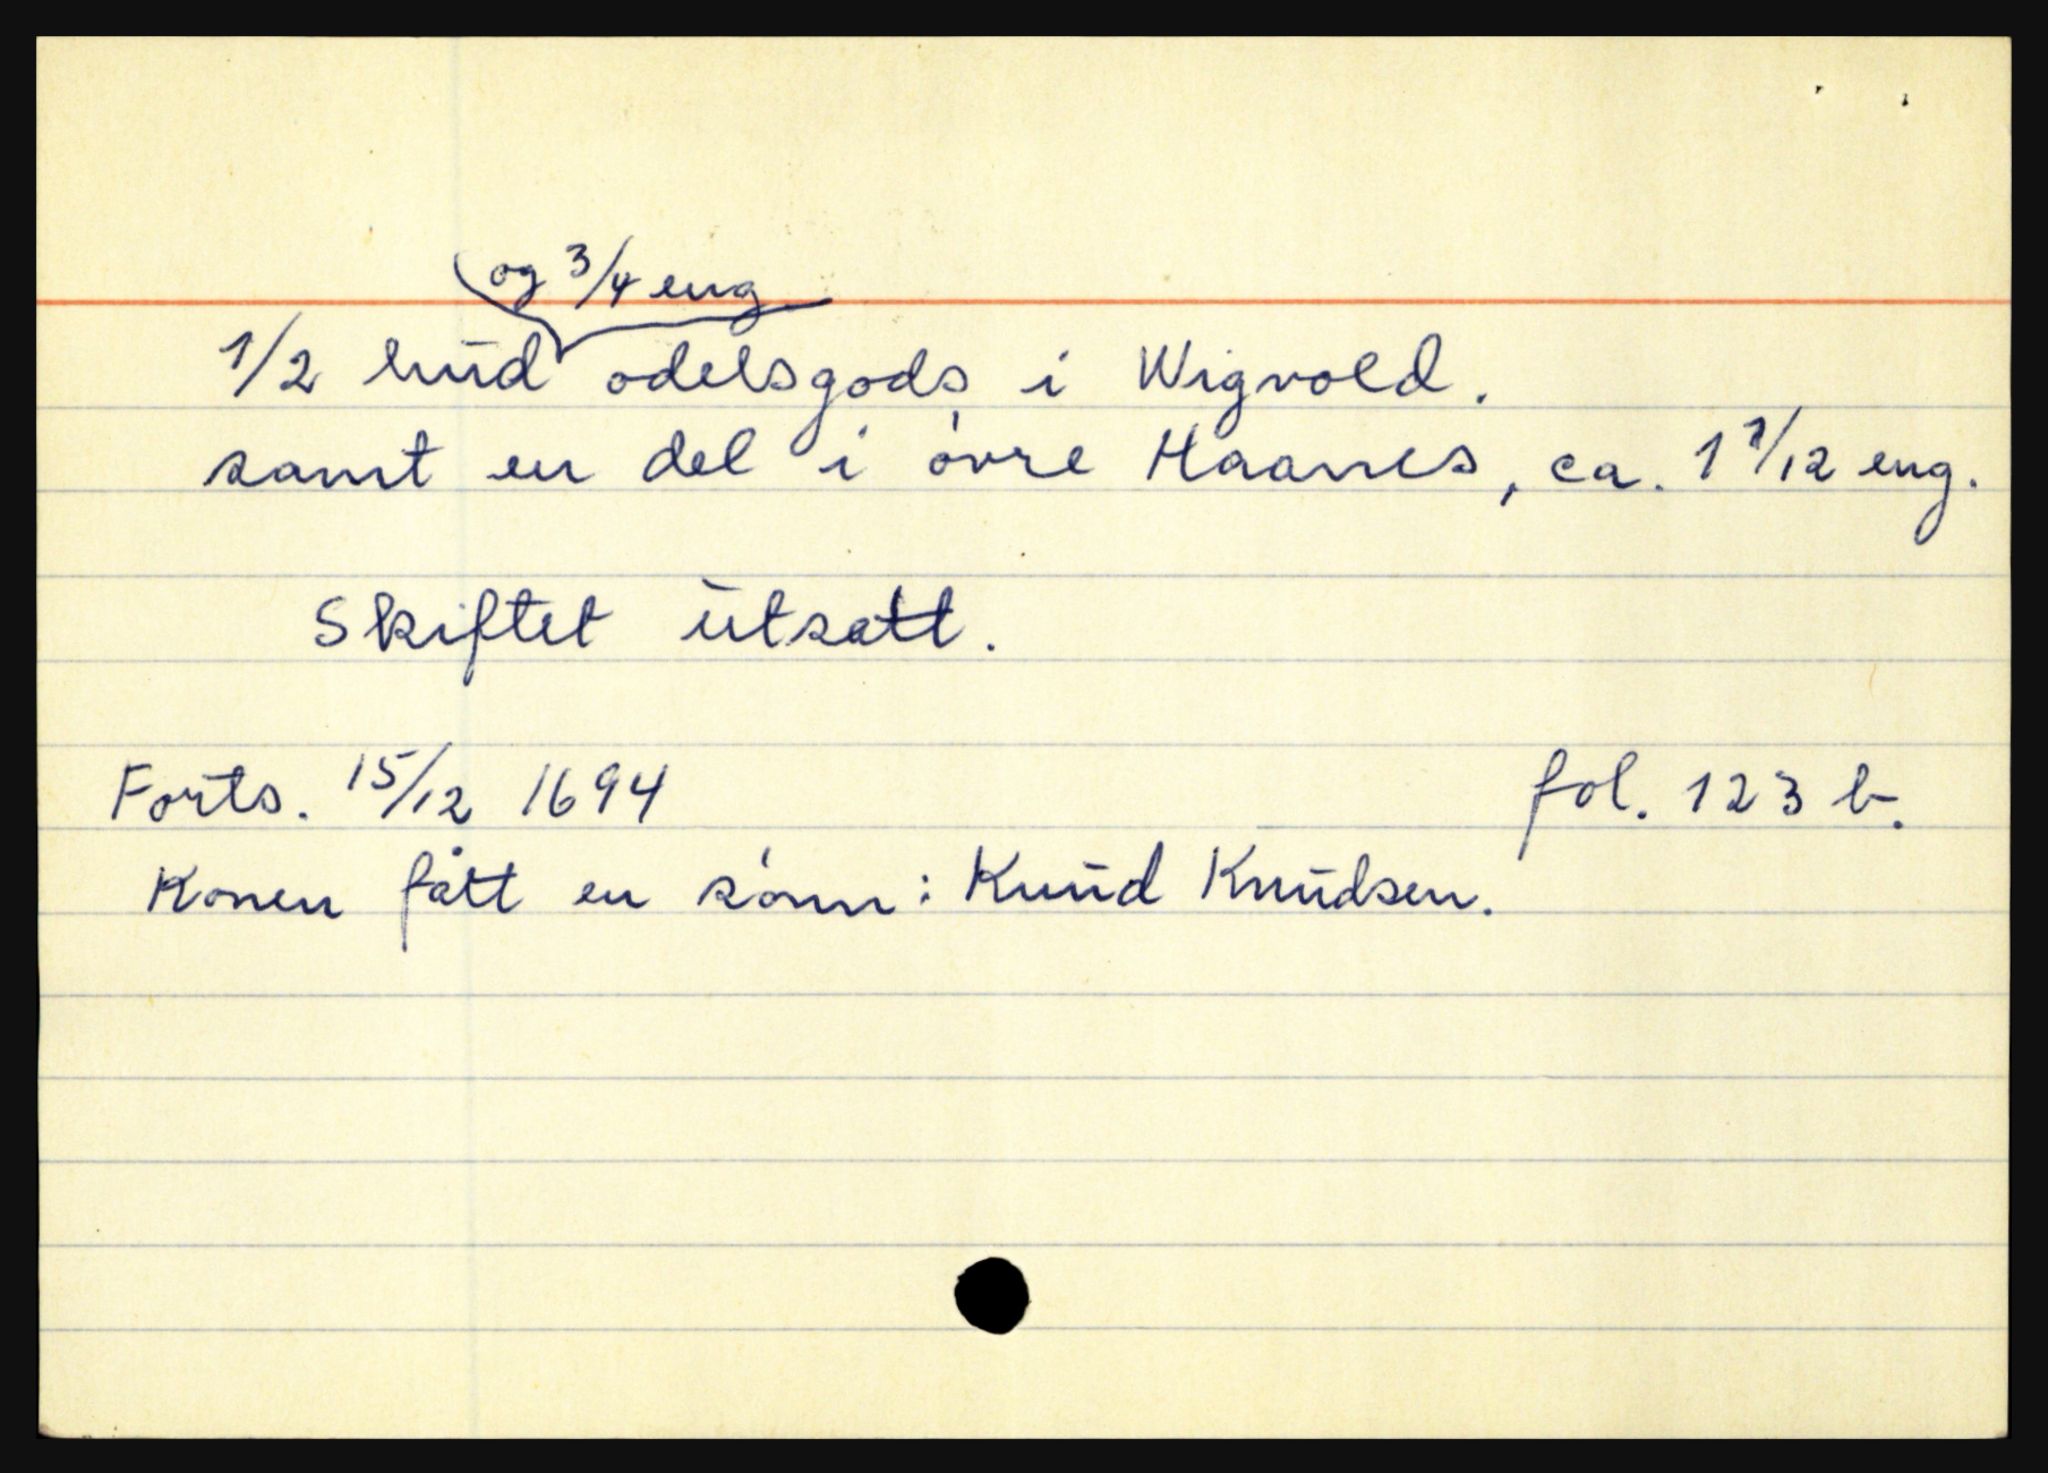 og 3/4 eng
1/2 hud odelsgods i Wigvold.
samt en del i øvre Haanes, ca. 1 7/12 eng.
Skiftet utsatt.
Forts. 15/12 1694 fol. 123 b.
Konen fått en sønn: Knud Knudsen.